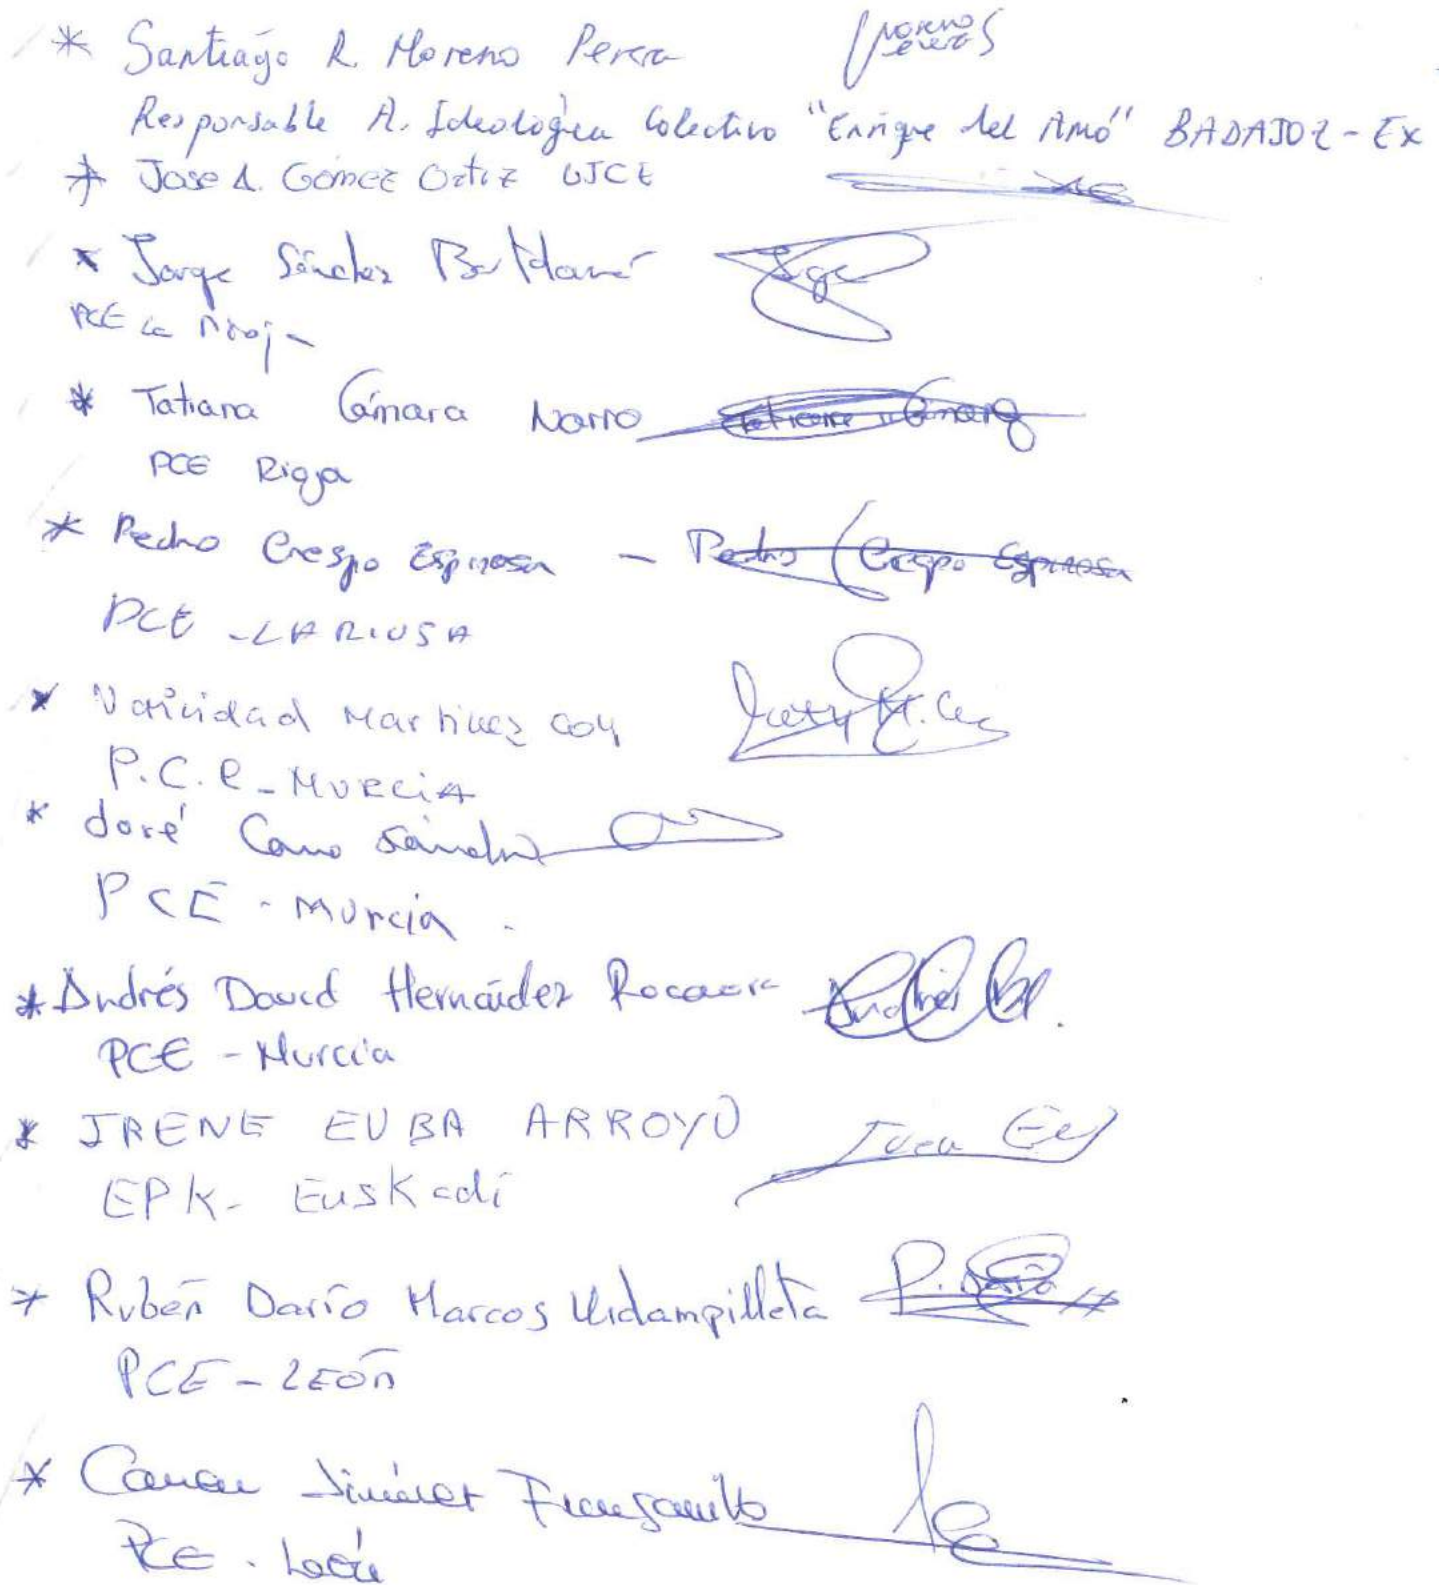 * Santiago R. Moreno Perera
Responsable A. Ideológica Colectivo "Enrique del Amó" BADAJOZ - Ex
* Jose A. Gómez Ortiz UJCE
* Jorge Sánchez
PCE La Rioja
* Tatiana Cámara Narro Tatiana Cámara
PCE Rioja
* Pedro Crespo Espinosa - Pedro Crespo Espinosa
PCE - LA RIOJA
* Natividad Martinez Coy
P.C.E - MURCIA
* José Cano Sánchez
PCE - Murcia.
* Andrés David Hernández
PCE - Murcia
* IRENE EUBA ARROYO
EPK - Euskadi
* Rubén Darío Marcos Vidampilleta
PCE - LEÓN
* Carmen Jiménez
PCE - León